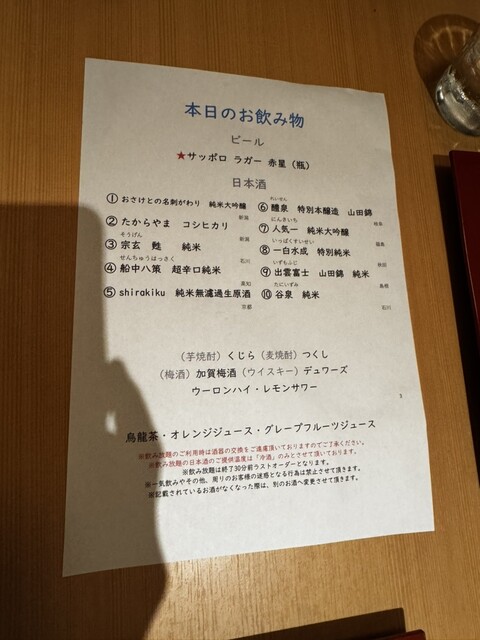 本日のお飲み物
ビール
★サッポロ ラガー 赤星（瓶）
日本酒
① おさけとの名刺がわり 純米大吟醸
新潟
② たからやま コシヒカリ
新潟
そうげん
③ 宗玄 甦 純米
石川
せんちゅうはっさく
④ 船中八策 超辛口純米
高知
⑤ shirakiku 純米無濾過生原酒
京都
れいせん
⑥ 醴泉 特別本醸造 山田錦
岐阜
にんきいち
⑦ 人気一 純米大吟醸
福島
いっぱくすいせい
⑧ 一白水成 特別純米
秋田
いずもふじ
⑨ 出雲富士 山田錦 純米
島根
たにいずみ
⑩ 谷泉 純米
石川
（芋焼酎）くじら（麦焼酎）つくし
（梅酒）加賀梅酒（ウイスキー）デュワーズ
ウーロンハイ・レモンサワー
烏龍茶・オレンジジュース・グレープフルーツジュース
※飲み放題のご利用時は酒器の交換をご遠慮頂いておりますのでご了承ください。
※飲み放題の日本酒のご提供温度は「冷酒」のみとさせて頂いております。
※飲み放題は終了30分前ラストオーダーとなります。
※一気飲みやその他、周りのお客様の迷惑となる行為は禁止させて頂きます。
※記載されているお酒がなくなった際は、別のお酒へ変更させて頂きます。